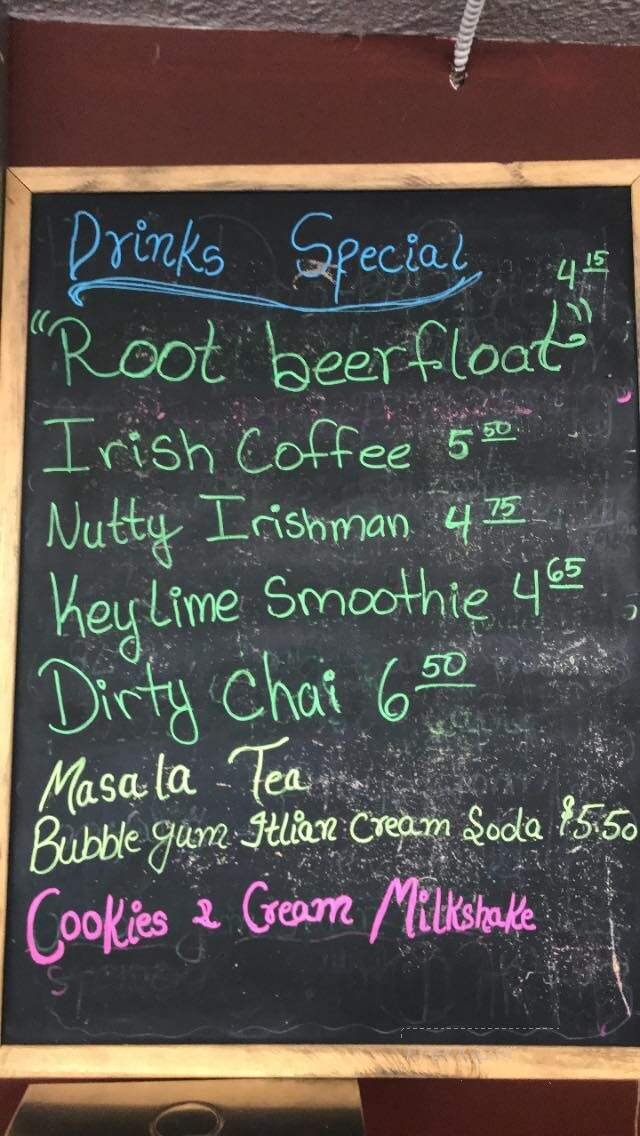 Drinks Special
4 15
"Root beer float"
Irish Coffee 5 50
Nutty Irishman 4 75
Key Lime Smoothie 4 65
Dirty Chai 6 50
Masala Tea
Bubble gum Itlian Cream Soda $5.50
Cookies & Cream Milkshake